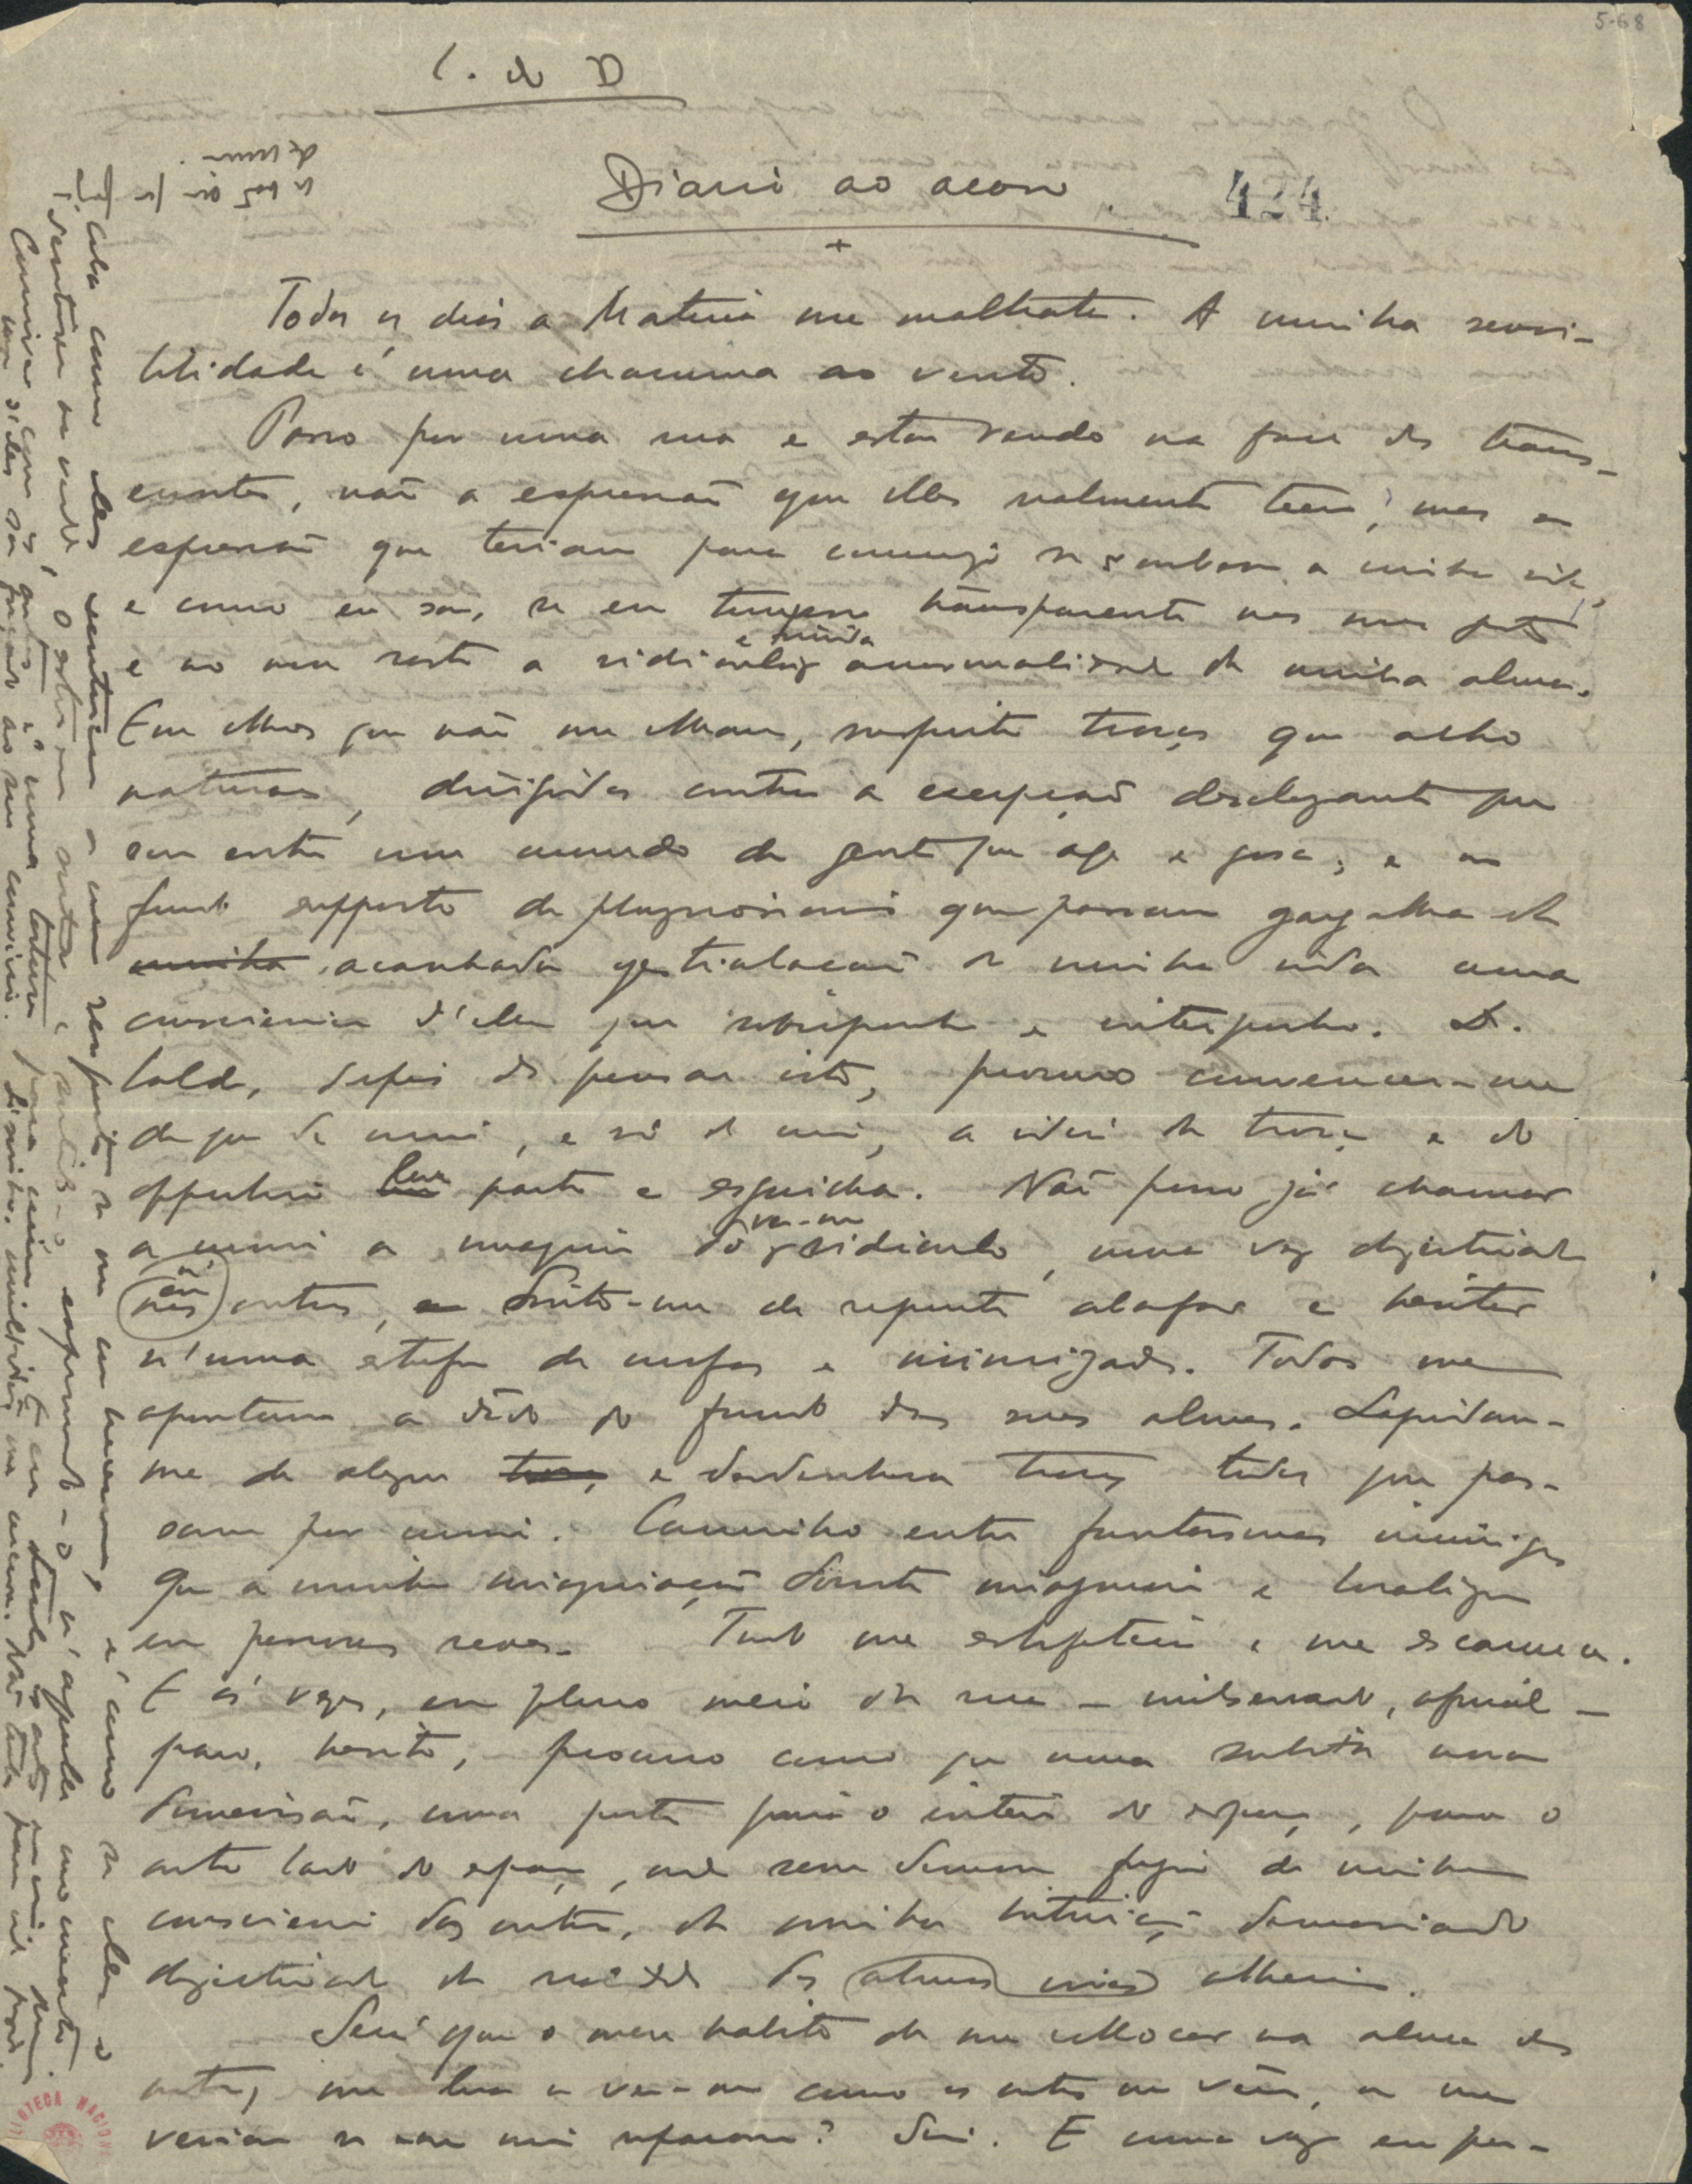 5-68
L. do D
Diario ao acaso.
424.
Todos os dias a Materia me maltrata. A minha sensi-
bilidade é uma chamma ao vento.
Passo por uma rua e estou vendo na face dos trans-
euntes, não a expressão que elles realmente teem, mas a
expressão que teriam para commigo se soubessem a minha vida,
e como eu sou, se eu trouxesse transparente nos meus gestos
e no meu rosto a ridicula e timida anormalidade de minha alma.
Em olhos que não me olham, suspeito troças que acho
naturaes, dirigidas contra a excepção deselegante que
sou entre um mundo de gente que age e gosa; e no
fundo supposto de physionomias que passam gargalha da
minha acanhada gesticulação da minha vida uma
consciencia d'ella que sobreponho e interponho. De-
balde, depois de pensar isto, procuro convencer-me
de que de mim, e só de mim, a ideia da troça e do
opprobrio leve parte e esguicha. Não posso já chamar
a mim a imagem do ver-me ridiculo, uma vez objectivada
nos outros, Sinto-me de repente abafar e hesitar
n'uma estufa de mofas e inimizades. Todos me
apontam a dedo do fundo das suas almas. Lapidam-
me de alegres e desdenhosas troças todos que pas-
sam por mim. Caminho entre phantasmas inimigos
que a minha imaginação doente imaginou e localizou
em pessoas reaes. Tudo me esbofeteia e me escarnece.
E ás vezes, em pleno meio da rua — inobservado, afinal —
paro, hesito, procuro como que uma subita nova
dimensão, uma porta para o interior do espaço, para o
outro lado do espaço, onde sem demora fuja da minha
consciencia dos outros, da minha intuição demasiado
objectivada da realidade das almas vivas alheias.
Será que o meu habito de me collocar na alma dos
outros, me leva a ver-me como os outros me vêem, ou me
veriam se em mim reparassem? Sim. E uma vez eu per-
ceba como elles sentiriam a meu respeito se me conhecessem, é como se elles o
sentissem de verdade, o estivessem sentindo, e exprimindo-o n'aquelle momento.
Conviver com os outros é uma tortura para mim. E eu tenho os outros em mim.